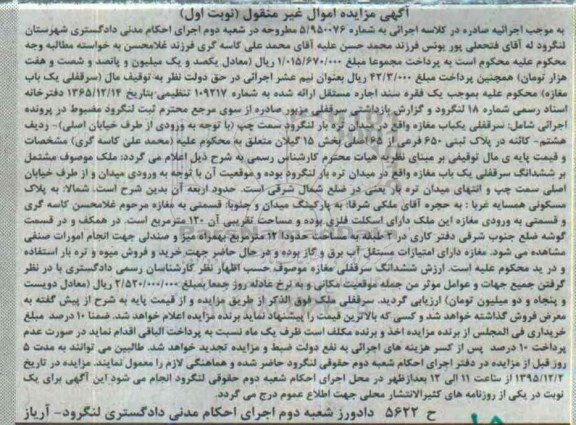 آگهی مزایده اموال غیر منقول (نوبت اول)
به موجب اجرائیه صادره در کلاسه اجرائی به شماره ۵/۹۵۰۰۷۶ مطروحه در شعبه دوم اجرای احکام مدنی دادگستری شهرستان
لنگرود له آقای فتحعلی پور یونس فرزند محمد حسن علیه آقای محمد علی کاسه گری فرزند غلامحسن به خواسته مطالبه وجه
محکوم علیه محکوم است به پرداخت مجموعا مبلغ ۱/۰۱۵/۶۷۰/۰۰۰ ریال (معادل یکصد و یک میلیون و پانصد و شصت و هفت
هزار تومان) همچنین پرداخت مبلغ ۴۲/۳/۰۰۰ ریال بعنوان نیم عشر اجرائی در حق دولت نظر به توقیف مال (سرقفلی یک باب
مغازه) محکوم علیه بموجب یک فقره سند اجاره مستقل ارائه شده به شماره ۱۰۹۲۱۷ تنظیمی-بتاریخ ۱۳۶۵/۱۲/۱۴ دفترخانه
اسناد رسمی شماره ۱۸ لنگرود و گزارش بازداشتی سرقفلی مزبور صادره از سوی مرجع محترم ثبت لنگرود مضبوط در پرونده
اجرائی شامل: سرقفلی یکباب مغازه واقع در میدان تره بار لنگرود سمت چپ (با توجه به ورودی از طرف خیابان اصلی) - ردیف
هشتم- کائنه در پلاک ثبتی ۶۵۰ فرعی از اصلی بخش ۱۵ گیلان متعلق به محکوم علیه (محمد علی کاسه گری) مشخصات
و قیمت پایه ی مال توقیفی بر مبنای نظریه هیات محترم کارشناس رسمی به شرح ذیل اعلام می گردد: ملک موصوف مشتمل
بر ششدانگ سرقفلی یک باب مغازه واقع در میدان تره بار لنگرود بوده و موقعیت آن با توجه به ورودی میدان و از طرف خیابان
اصلی سمت چپ و انتهای میدان تره بار یعنی در ضلع شمال شرقی است. حدود اربعه آن بدین شرح است: شمالا: به پلاک
مسکونی همسایه غربا: به حجره آقای ملکی شرقا: به پارکینگ میدان و جنوبا: قسمتی به مغازه مرحوم غلامحسن کاسه گری
و قسمتی به ورودی مغازه این ملک دارای اسکلت فلزی بوده و مساحت تقریبی آن ۱۳۰ مترمربع است. در همکف و در قسمت
گوشه ضلع جنوب شرقی دفتر کاری در ۲ طبقه به مساحت حدودا ۱۲ مترمربع بهمراه میز و صندلی جهت انجام امورات صنفی
مشاهده می شود. مغازه دارای امتیازات مستقل آب برق و گاز بوده و در حال حاضر جهت خرید و فروش میوه و تره بار استفاده
و در ید محکوم علیه است. ارزش ششدانگ سرقفلی مغازه موصوف حسب اظهار نظر کارشناسان رسمی دادگستری با در نظر
گرفتن جمیع جهات و عوامل موثر من جمله موقعیت مکانی و به نرخ عادله روز جمعا بمبلغ ۲/۵۲۰/۰۰۰/۰۰۰ ریال (معادل دویست
و پنجاه و دو میلیون تومان) ارزیابی گردید. سرقفلی ملک فوق الذکر از طریق مزایده و از قیمت پایه به شرح از پیش گفته به
معرض فروش گذاشته خواهد شد و کسی که بالاترین قیمت را پیشنهاد نماید برنده مزایده اعلام خواهد شد. ضمنا ۱۰ درصد مبلغ
خریداری فی المجلس از برنده مزایده اخذ و برنده مکلف است ظرف یک ماه نسبت به پرداخت الباقی اقدام نماید در صورت عدم
پرداخت ۱۰ درصد پس از کسر هزینه های اجرائی به نفع دولت ضبط و مزایده تجدید خواهد شد. طالبین می توانند به مدت ۵
روز قبل از مزایده در دفتر اجرای احکام شعبه دوم حقوقی لنگرود حاضر شده و هماهنگی لازم را معمول نمایند. مزایده در تاریخ
۱۳۹۵/۱۲/۳ از ساعت ۱۱ الی ۱۲ بعدازظهر در محل اجرای احکام شعبه دوم حقوقی لنگرود انجام می شود این آگهی برای یک
نوبت در یکی از روزنامه های کثیرالانتشار محلی جهت اطلاع عموم درج می گردد.
ح ۵۶۲۲ دادورز شعبه دوم اجرای احکام مدنی دادگستری لنگرود- آریاز